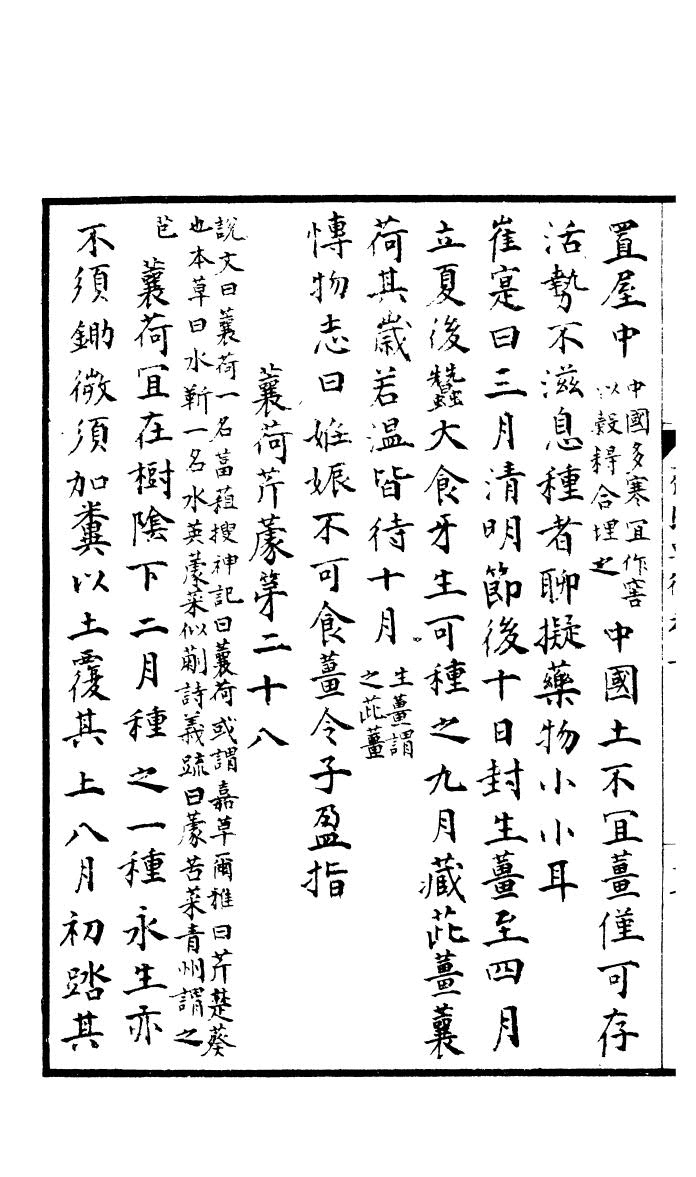 置屋中中國多寒宜作窖以穀稃合埋之中國土不宜薑僅可存
活勢不滋息種者聊擬藥物小小耳
崔寔曰三月清明節後十日封生薑至四月
立夏後蠶大食牙生可種之九月藏茈薑蘘
荷其歲若溫皆待十月生薑謂之茈薑
愽物志曰妊娠不可食薑令子盈指
蘘荷芹䕷第二十八
說文曰蘘荷一名葍蒩搜神記曰蘘荷或謂嘉草爾雅曰芹楚葵
也本草曰水靳一名水英䕷菜似蒯詩義疏曰䕷苦菜青州謂之
芑
蘘荷宜在樹隂下二月種之一種永生亦
不須鋤微須加糞以土覆其上八月初踏其